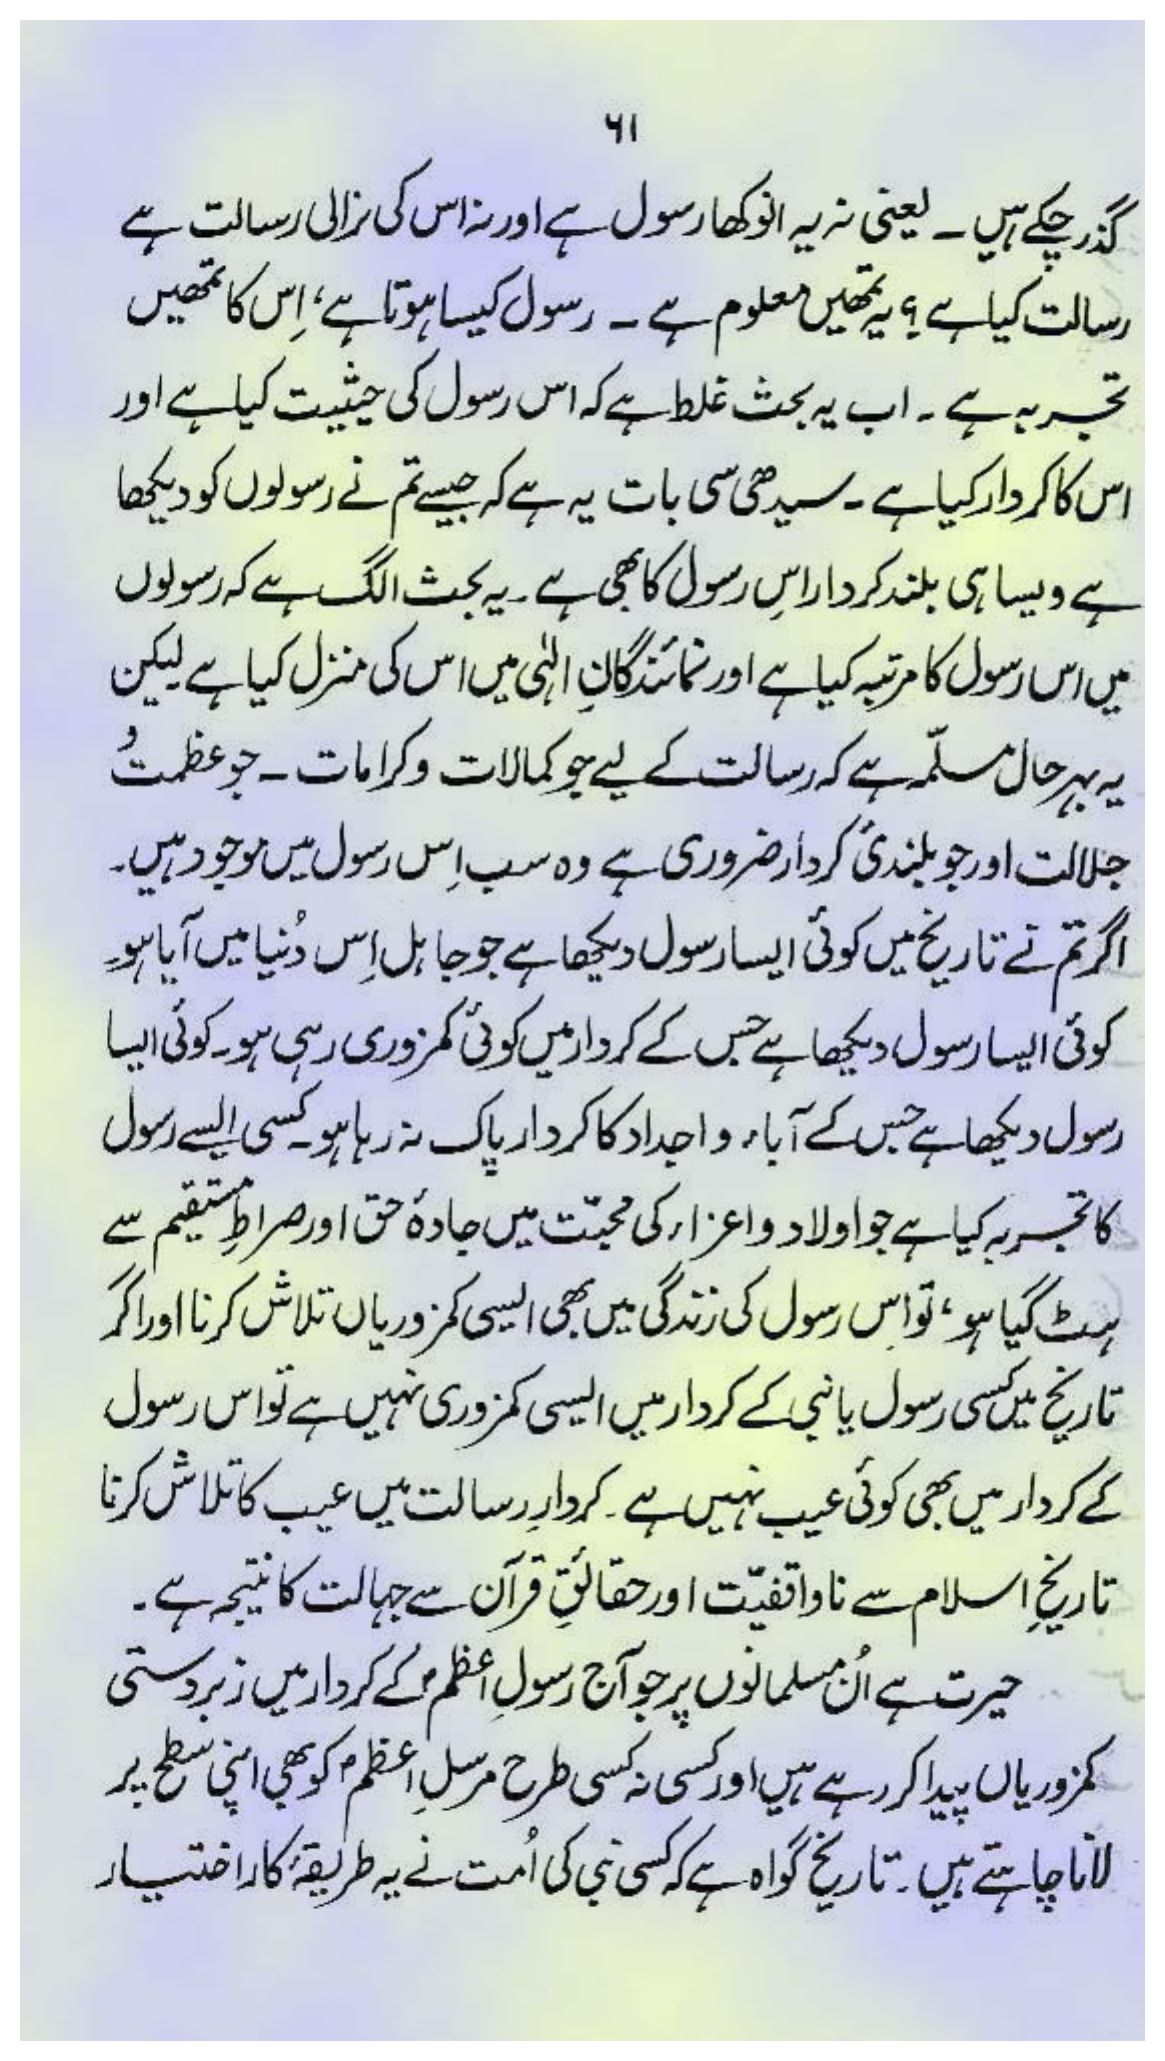 ۶۱
گذر چکے ہیں ۔ یعنی نہ یہ انوکھا رسول ہے اور نہ اس کی نرالی رسالت ہے
رسالت کیا ہے ؟ یہ تمھیں معلوم ہے ۔ رسول کیسا ہوتا ہے، اِس کا تمھیں
تجربہ ہے ۔ اب یہ بحث غلط ہے کہ اس رسول کی حیثیت کیا ہے اور
اس کا کردار کیا ہے ۔ سیدھی سی بات یہ ہے کہ جیسے تم نے رسولوں کو دیکھا
ہے ویسا ہی بلند کردار اس رسول کا بھی ہے ۔ یہ بحث الگ ہے کہ رسولوں
میں اس رسول کا مرتبہ کیا ہے اور نمائندگانِ الٰہی میں اس کی منزل کیا ہے لیکن
یہ بہرحال مسلّمہ ہے کہ رسالت کے لیے جو کمالات و کرامات ۔ جو عظمت و
جلالت اور جو بلندیٔ کردار ضروری ہے وہ سب اِس رسول میں موجود ہیں۔
اگر تم نے تاریخ میں کوئی ایسا رسول دیکھا ہے جو جاہل اِس دُنیا میں آیا ہو۔
کوئی ایسا رسول دیکھا ہے جس کے کردار میں کوئی کمزوری رہی ہو۔ کوئی ایسا
رسول دیکھا ہے جس کے آباء و اجداد کا کردار پاک نہ رہا ہو۔ کسی ایسے رسول
کا تجربہ کیا ہے جو اولاد و اعزاء کی محبّت میں جادۂ حق اور صراطِ مستقیم سے
ہٹ گیا ہو، تو اس رسول کی زندگی میں بھی ایسی کمزوریاں تلاش کرنا اور اگر
تاریخ میں کسی رسول یا نبی کے کردار میں ایسی کمزوری نہیں ہے تو اس رسول
کے کردار میں بھی کوئی عیب نہیں ہے ۔ کردارِ رسالت میں عیب کا تلاش کرنا
تاریخِ اسلام سے ناواقفیّت اور حقائقِ قرآن سے جہالت کا نتیجہ ہے ۔
حیرت ہے اُن مسلمانوں پر جو آج رسولِ اعظمؐ کے کردار میں زبردستی
کمزوریاں پیدا کر رہے ہیں اور کسی نہ کسی طرح مرسلِ اعظمؐ کو بھی اپنی سطح پر
لانا چاہتے ہیں ۔ تاریخ گواہ ہے کہ کسی نبی کی اُمت نے یہ طریقۂ کار اختیار